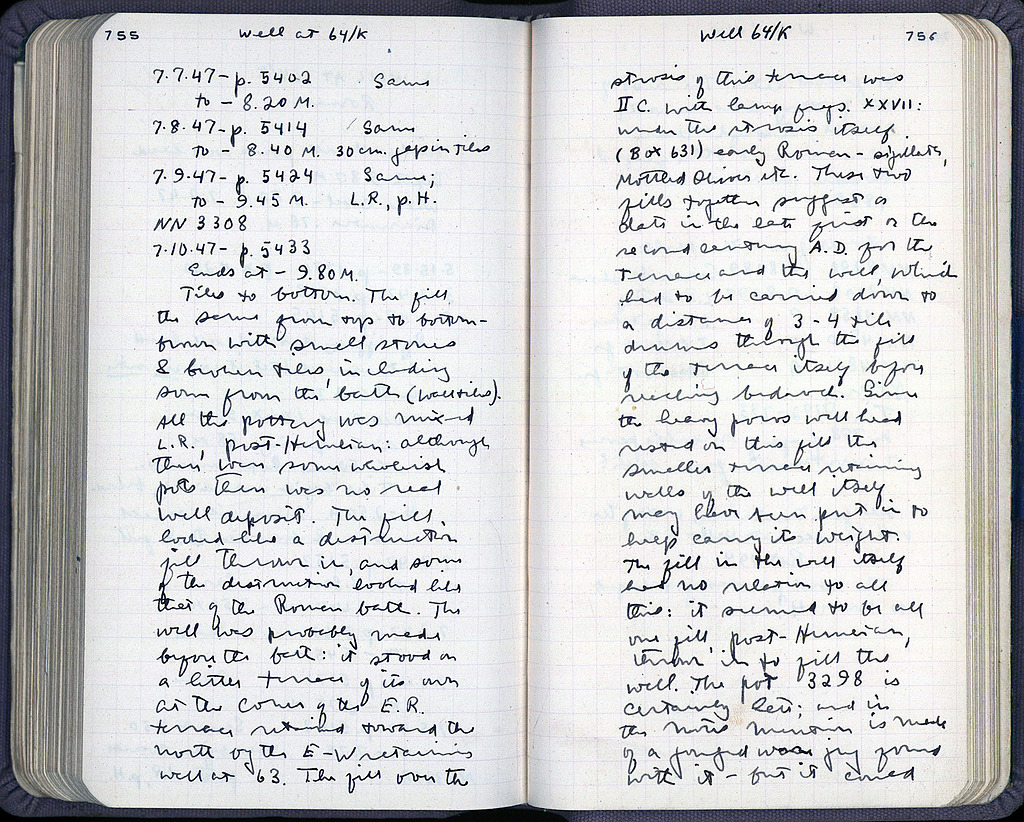 755 Well at 64/K
7.7.47 - p. 5402 Same
to - 8.20 M.
7.8.47 - p. 5414 Same
to - 8.40 M. 30 cm. gap in tiles
7.9.47 - p. 5424 Same,
to - 9.45 M. L.R., p.H.
NN 3308
7.10.47 - p. 5433
Ends at - 9.80 M.
Tiles to bottom. The fill
the same from top to bottom -
brown with small stones
& broken tiles, including
some from the bath (wall tiles).
All the pottery was mixed
L.R., post-Herulian: although
there were some wheelish
pots there was no real
well deposit. The fill
looked like a destruction
fill thrown in, and some
of the destruction looked like
that of the Roman bath. The
well was probably made
before the bath: it stood on
a little terrace of its own
at the corner of the E.R.
terrace retained toward the
north by the E-W retaining
wall at 63. The fill over the
Well 64/K 756
strosis of this terrace was
II C. with lamp frgs. XXVII:
under the strosis itself
(Box 631) early Roman - sigillata,
etc. These two
fills together suggest a
date in the late first or the
second century A.D. for the
terrace and the well, which
had to be carried down to
a distance of 3-4 tile
drums through the fill
of the terrace itself before
reaching bedrock. Since
the heavy poros well head
rested on this fill the
smaller terrace retaining
walls of the well itself
may have been put in to
help carry its weight.
The fill in the well itself
had no relation to all
this: it seemed to be all
one fill, post-Herulian,
thrown in to fill the
well. The pot 3298 is
certainly late; and in
the notes mention is made
of a gouged jug found
with it - but it could